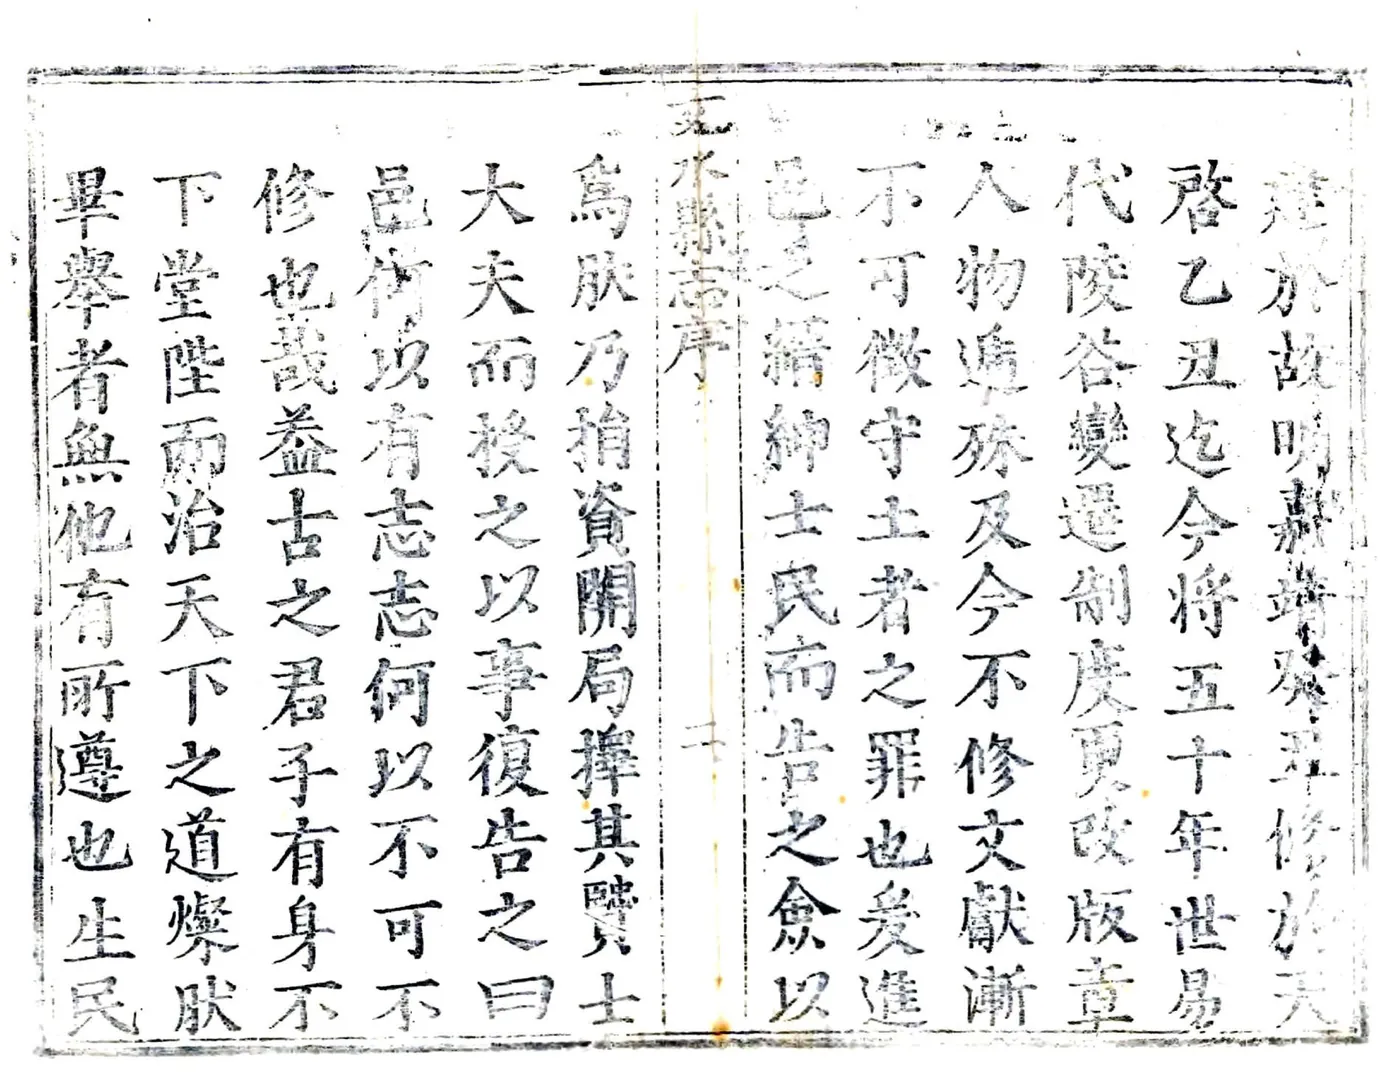 建於故明嘉靖癸丑修於天
啓乙丑迄今将五十年世易
代陵谷變遷制度更改版章
人物遞殊及今不修文獻漸
不可徵守土者之罪也爰進
邑之縉紳士民而告之僉以
水縣志序 二
爲肰乃捐資開局擇其賢士
大夫而授之以事復告之曰
邑何以有志志何以不可不
修也哉葢古之君子有身不
下堂陛而治天下之道燦肰
畢舉者無他有所遵也生民